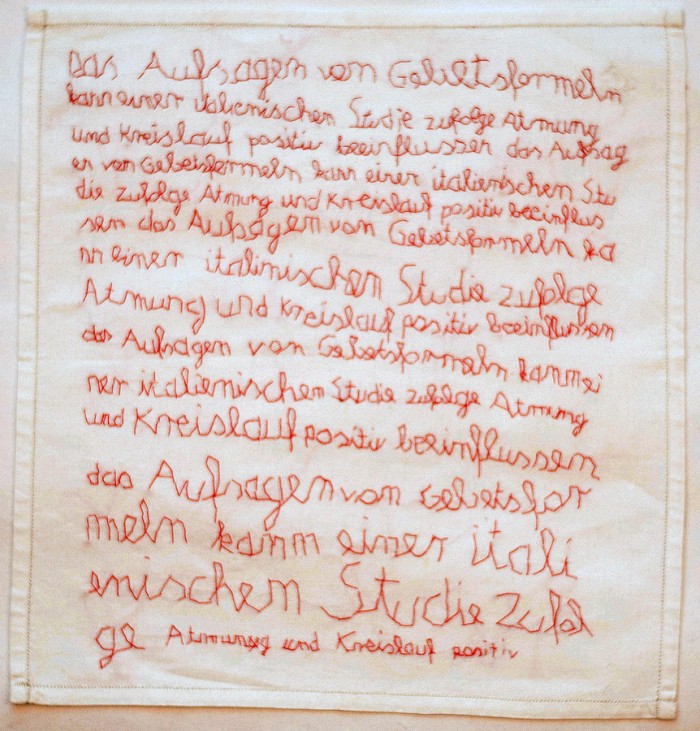 Das Aufsagen von Gebetsformeln
kann einer italienischen Studie zufolge Atmung
und Kreislauf positiv beeinflussen das Aufsag
en von Gebetsformeln kann einer italienischen Stu
die zufolge Atmung und Kreislauf positiv beeinflus
sen das Aufsagen von Gebetsformeln ka
nn einer italinischen Studie zufolge
Atmung und Kreislauf positiv beeinflussen
das Aufsagen von Gebetsformeln kann ei
ner italienischen Studie zufolge Atmung
und Kreislauf positiv beeinflussen
das Aufsagen von Gebetsfor
meln kann einer itali
enischen Studie zufol
ge Atmung und Kreislauf positiv